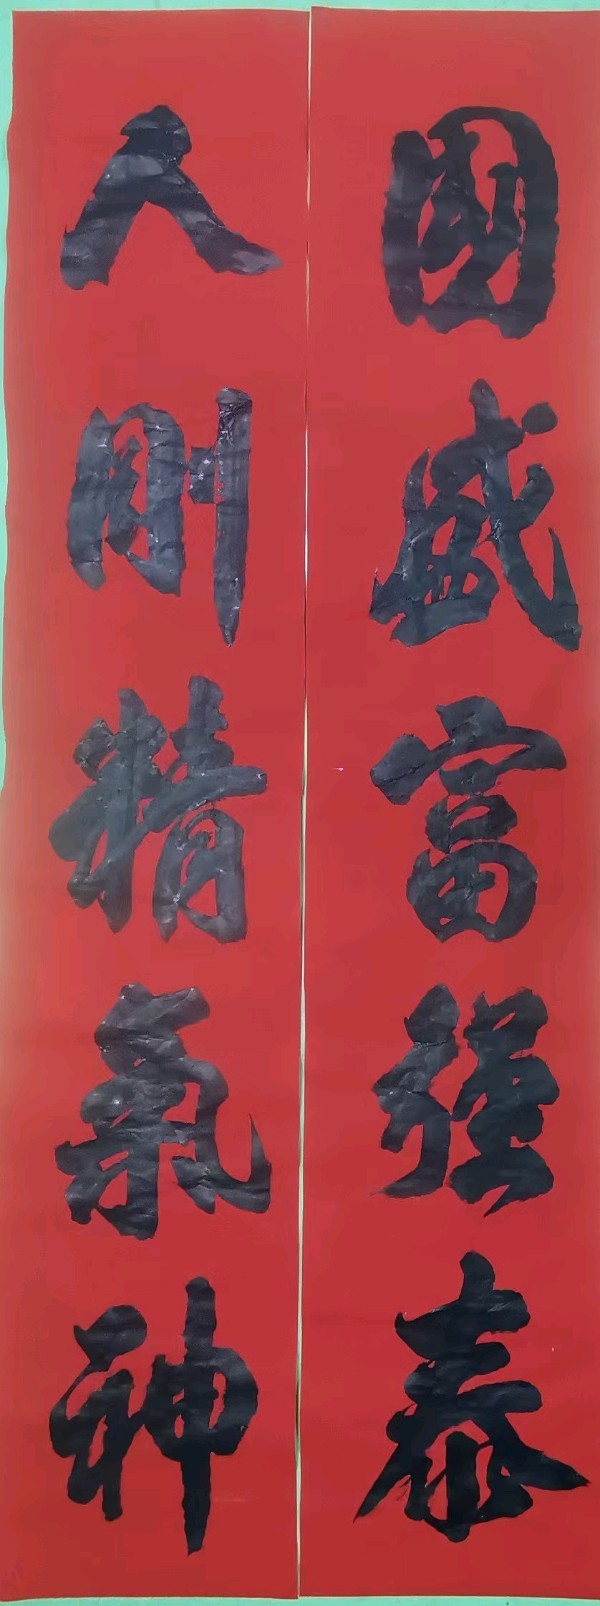 國盛富强泰
人剛精氣神